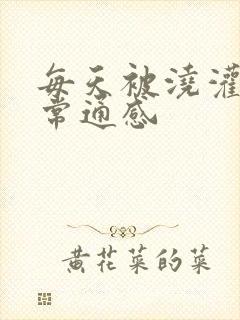 每天被浇灌
常通感
黄花菜的菜